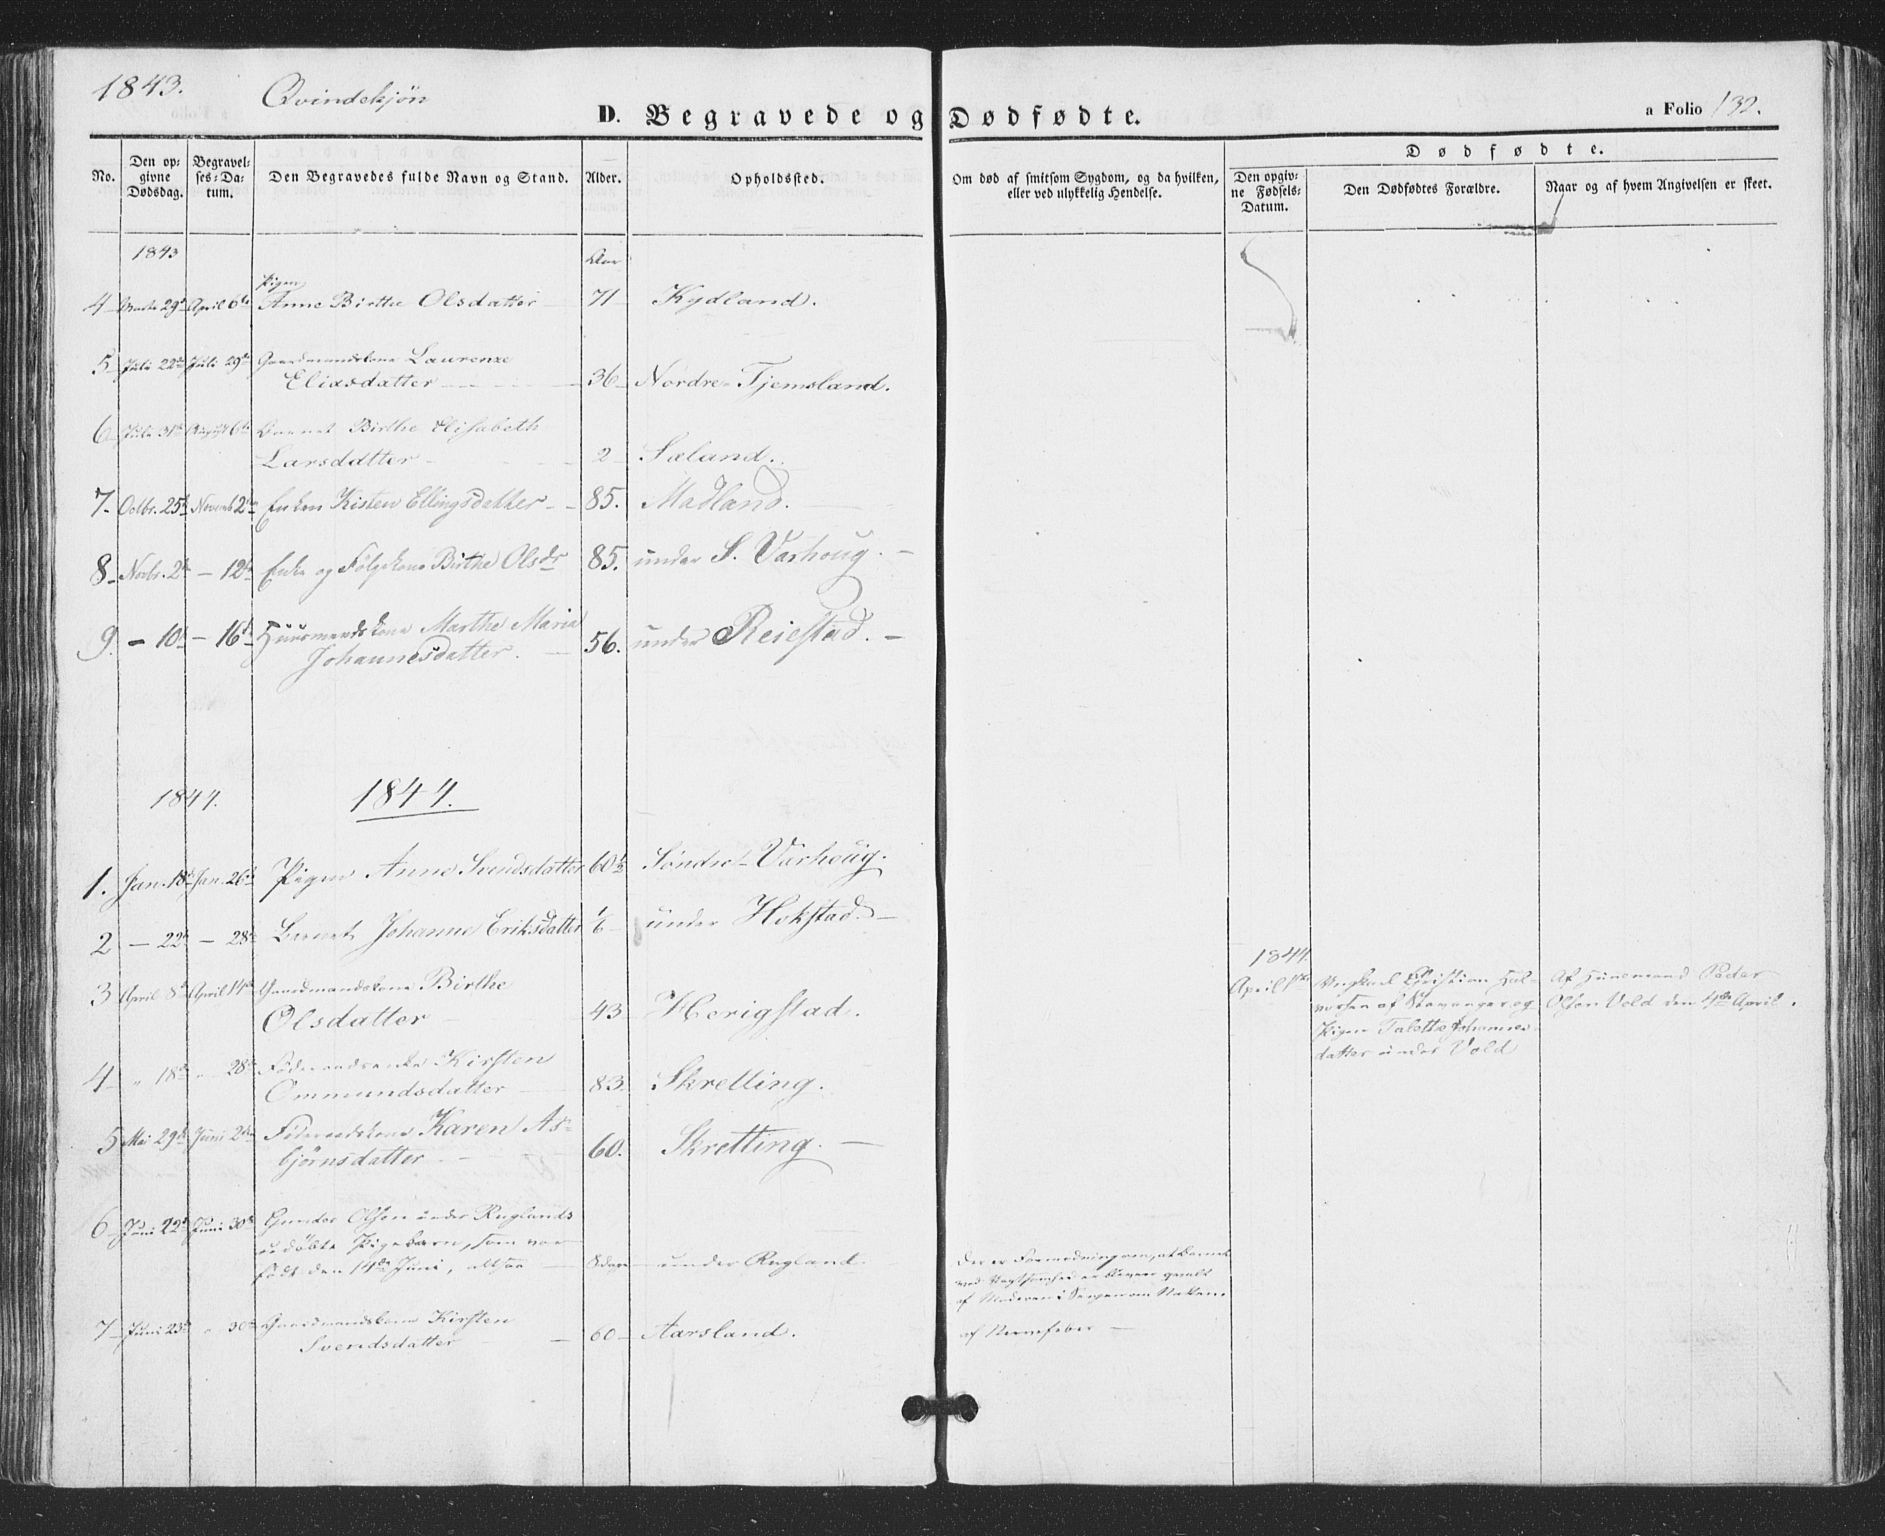 1843. Qvindekjøn
D. Begravede og Dødfødte. a Folio 132.
No. Den opgivne Dødsdag. Begravelses-Datum. Den Begravedes fulde Navn og Stand. Alder. Opholdssted. Om død af smitsom Sygdom, og da hvilken, eller ved ulykkelig Hendelse. Dødfødte. Den opgivne Fødsels-Datum. Den Dødfødtes Forældre. Naar og af hvem Angivelsen er skeet.
1843 Aar
Pigen
4 Marts 29 April 6te Anne Birthe Olsdatter 71 Kydland.
5 Juli 22de Juli 29de Gaardmandskone Laurenze
Eliasdatter 36 Nordre Tjemsland.
6 Juli 31te August 6te Barnet Birthe Elisabeth
Larsdatter 2 Sæland.
7. Octbr. 25 Novemb 2den Enken Kisten Ellingsdatter 85. Madland.
8 Novbr. 2den — 12te Enke og Følgekone Birthe Olsdr 85. under S. Varhoug.
9. — 10de — 16de Huusmandskone Marthe Maria
Johannesdatter. 56. under Reiestad.
1844. 1844.
1. Jan. 18de Jan. 26de Pigen Anne Svendsdatter 60½ Søndre Varhoug.
2 — 22de — 28de Barnet Johanne Eriksdatter 1/6 under Hokstad.
3 April 8de April 14de Gaardmandskone Birthe
Olsdatter 43 Herigstad.
1844.
April 1ste Ungkarl Christian Hal-
vorsen af Stavanger og
Pigen Talette Johannes-
datter under Vold
Af Huusmand Peder
Olsen Vold den 4de April.
4 " 18de " 28de Føderaadsenke Kirsten
Ommundsdatter 83 Skretting.
5 Mai 29de Juni 2den Føderaadskone Karen As-
bjørnsdatter 60. Skretting.
6 Juni 22de Juni 30te Gunder Olsen under Ruglands
udøbte Pigebarn, som var
født den 14de Juni, altsaa 8 dage under Rugland.
Der er Formodning om, at Barnet
ved Uagtsomhed er bleven qvalt
af Moderen i Sengen om Natten.
7 Juni 23de " 30te Gaardmandskone Kirsten
Svendsdatter 60 Aarsland. af Nervefeber